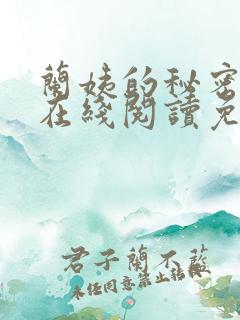 蘭姨的秘密
在綫閱讀免
君子蘭不藍
未經同意禁止轉載